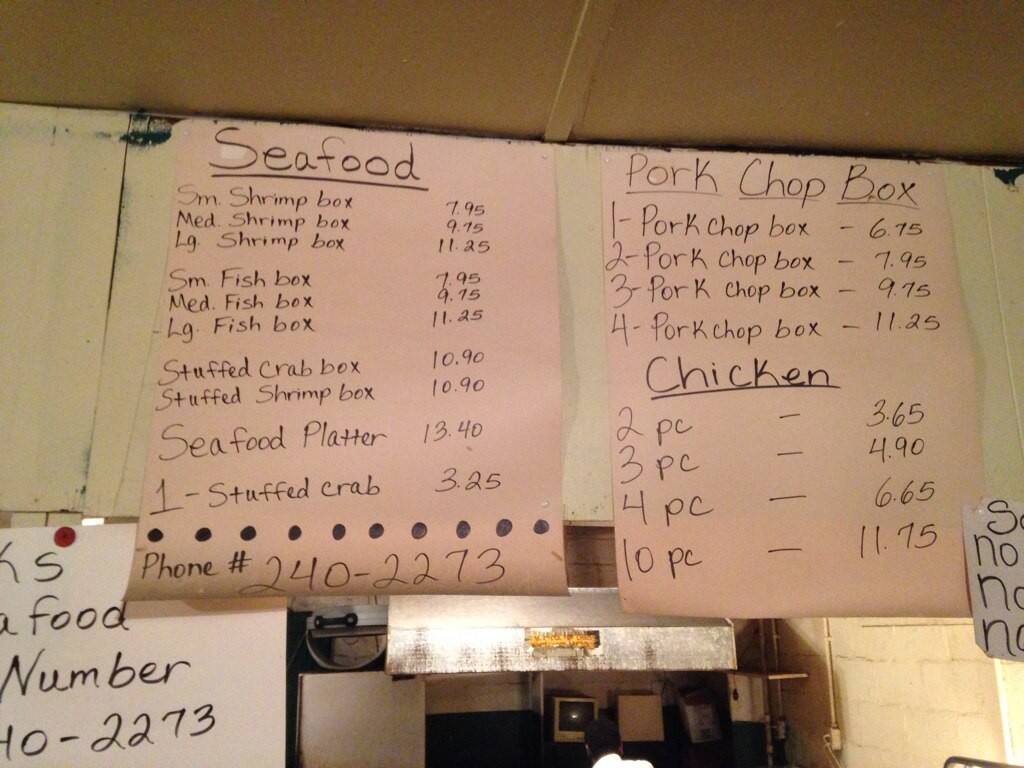 Seafood
Sm. Shrimp box 7.95
Med. Shrimp box 9.75
Lg. Shrimp box 11.25
Sm. Fish box 7.95
Med. Fish box 9.75
Lg. Fish box 11.25
Stuffed Crab box 10.90
Stuffed Shrimp box 10.90
Seafood Platter 13.40
1 - Stuffed Crab 3.25
Phone # 240-2273
Pork Chop Box
1- Pork chop box - 6.75
2- Pork Chop box - 7.95
3- Pork Chop box - 9.75
4- Porkchop box - 11.25
Chicken
2 pc - 3.65
3 pc - 4.90
4 pc - 6.65
10 pc - 11.75
afood
Number
40-2273
no